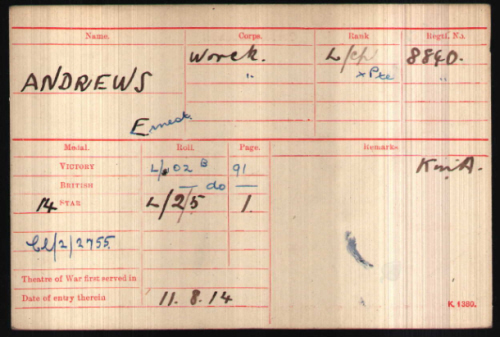 Name. Corps. Rank Regtl. No.
ANDREWS Worck. L/Cpl 8840.
" x Pte "
Ernest
Medal. Roll. Page. Remarks
VICTORY L/102 B 91 KinA.
BRITISH — do —
14 STAR L/2/5 1
Cl/2/2755
Theatre of War first served in
Date of entry therein 11.8.14
K. 1380.